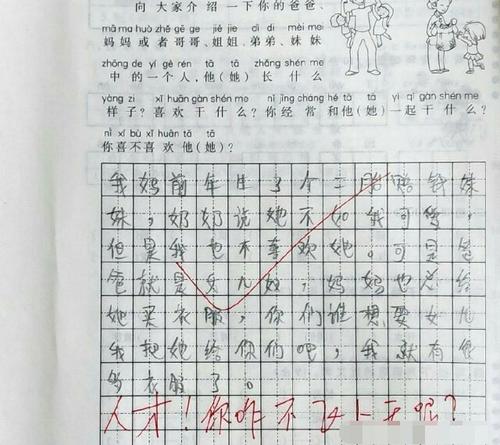 向 大家 介绍 一下 你的 爸爸、
mā ma huò zhě gē ge jiě jie dì di mèi mei
妈妈 或者 哥哥、姐姐、弟弟、妹妹
zhōng de yí gè rén tā tā zhǎng shén me
中 的 一个 人,他(她) 长 什么
yàng zi xǐ huān gàn shén me nǐ jīng cháng hé tā tā yì qǐ gàn shén me
样子?喜欢 干 什么?你 经常 和他(她)一起 干什么?
nǐ xǐ bù xǐ huān tā tā
你喜不喜欢 他(她)?
我妈前年生了个二胎赔钱妹
妹,奶奶说她不如我可爱,
但是我也不喜欢她。可是爸
爸就是女儿奴,妈妈也总给
她买衣服,你们谁想要女儿
我把她给你们吧,我就有很
多衣服了。
人才!你咋不上天呢?